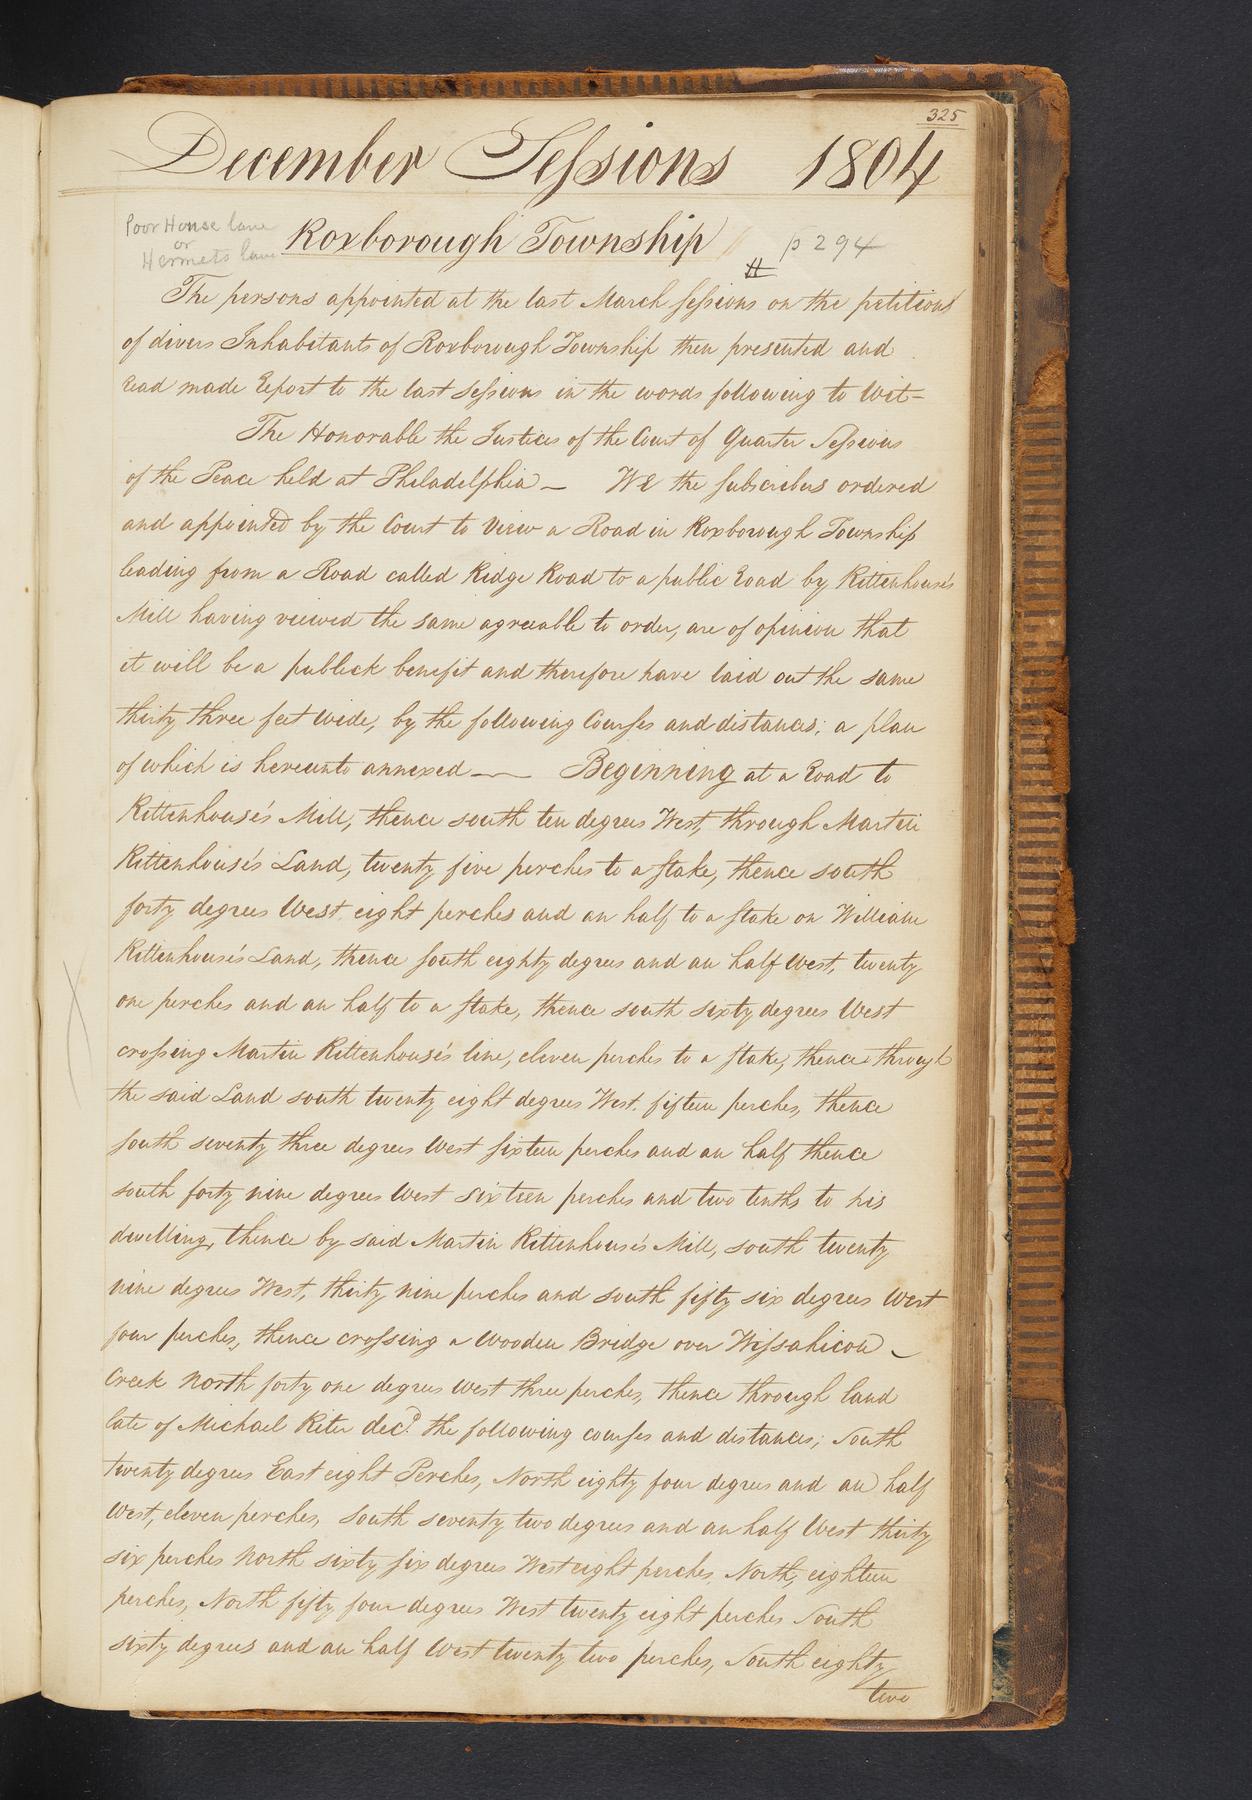 325
December Sessions 1804
Poor House lane
or
Hermets lane
Roxborough Township // p 294
The persons appointed at the last March sessions on the petitions
of divers Inhabitants of Roxborough Township then presented and
read made Report to the last Sessions in the words following to Wit=
The Honorable the Justices of the Court of Quarter Sessions
of the Peace held at Philadelphia — We the subscribers ordered
and appointed by the Court to View a Road in Roxborough Township
leading from a Road called Ridge Road to a public road by Rittenhouse's
Mill having viewed the same agreeable to order, are of opinion that
it will be a publick benefit and therefore have laid out the same
thirty three feet wide, by the following Courses and distances; a plan
of which is hereunto annexed — Beginning at a road to
Rittenhouse's Mill, thence south ten degrees West, through Martin
Rittenhouse's Land, twenty five perches to a stake, thence south
forty degrees West eight perches and an half to a stake on William
Rittenhouse's Land, thence south eighty degrees and an half West, twenty
one perches and an half to a stake, thence south sixty degrees West
crossing Martin Rittenhouse's line, eleven perches to a stake, thence through
the said Land south twenty eight degrees West. fifteen perches, thence
south seventy three degrees West sixteen perches and an half thence
south forty nine degrees West sixteen perches and two tenths to his
dwelling, thence by said Martin Rittenhouse's Mill, south twenty
nine degrees West, thirty nine perches and south fifty six degrees West
four perches, thence crossing a Wooden Bridge over Wissahicon
Creek North forty one degrees West three perches, thence through land
late of Michael Riter decd. the following courses and distances; South
twenty degrees East eight Perches, North eighty four degrees and an half
West, eleven perches, South seventy two degrees and an half West thirty
six perches North sixty six degrees West eight perches, North, eighteen
perches, North fifty four degrees West twenty eight perches South
sixty degrees and an half West twenty two perches, South eighty
two